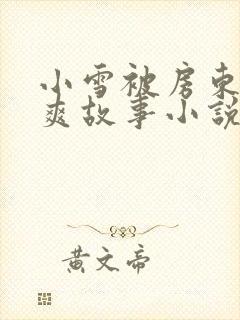 小雪被房東
爽故事小說
黃文帝